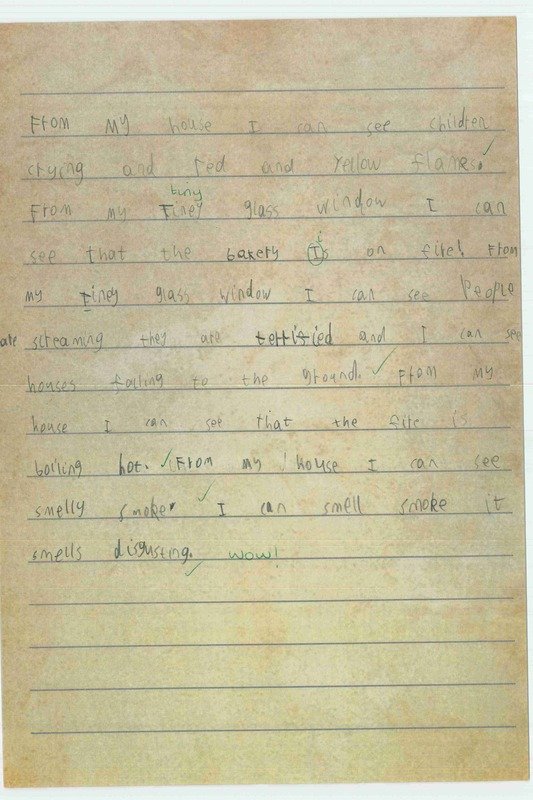 From my house I can see children
crying and red and yellow flames.
tiny
From my Tiney glass window I can
see that the bakery Is on fire! From
my Tiney glass window I can see People
are screaming they are terrified and I can see
houses falling to the ground. From my
house I can see that the fire is
boiling hot. From my house I can see
smelly smoke. I can smell smoke it
smells disgusting. wow!